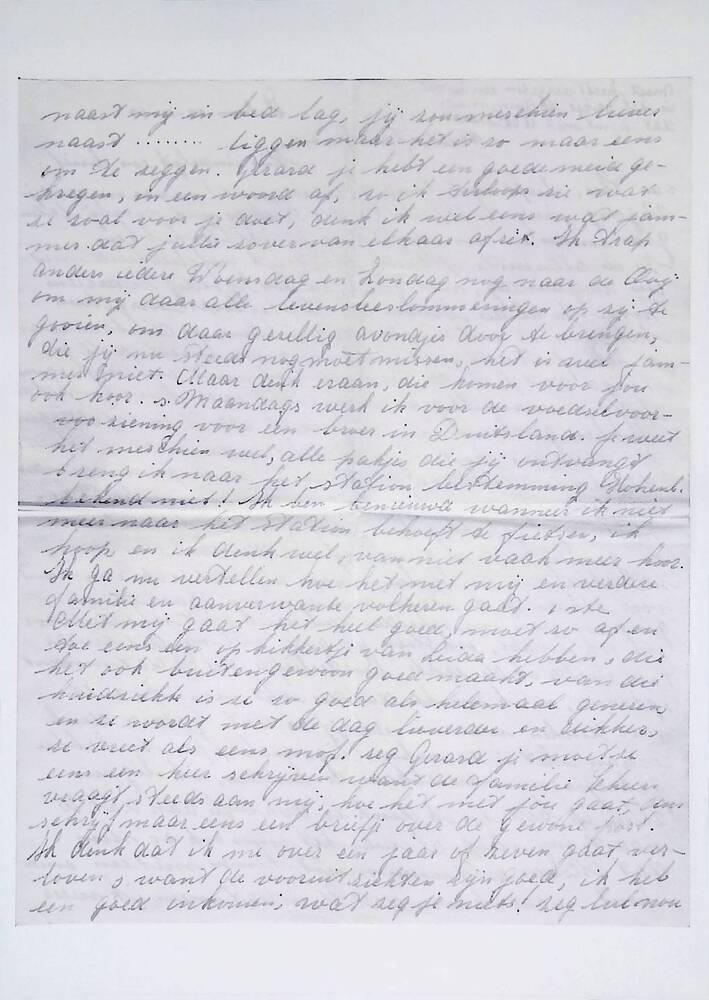 naast mij in bed lag, jij zou meschien liever
naast ........ liggen maar het is zo maar eens
om te zeggen. Gerard je hebt een goede meid ge-
kregen, in een woord af, zo ik zie wat
ze zoal voor je doet, denk ik wel eens wat jam-
mer dat jullie zover van elkaar af zit. Ik trap
anders iedere Woensdag en Zondag nog naar de
om mij daar alle levensbeslommeringen op zij te
gooien, om daar gezellig avondjes door te brengen,
die jij nu steeds nog moet missen, het is jam-
mer niet. Maar denk eraan, die komen voor jou
ook hoor. s Maandags werk ik voor de voedselvoor-
voo ziening voor een broer in Duitsland. Je weet
het meschien wel, alle pakjes die jij ontvangt
breng ik naar het station bestemming Hohenl.
bekend niet! Ik ben benieuwd wanneer ik niet
meer naar het station behoeft te fietsen, ik
hoop en ik denk wel, van niet vaak meer hoor.
Ik ga nu vertellen hoe het met mij en verdere
familie en aanverwante volkeren gaat. 1 ste
Met mij gaat het heel goed, moet zo af en
toe eens een ophikkertje van Leida hebben, die
het ook buitengewoon goed maakt, van die
huidziekte is ze zo goed als helemaal genezen
en ze wordt met de dag lieverder en dikker,
ze vreet als eens mof. zeg Gerard je moet ze
eens een keer schrijven want de familie
vraagt steeds aan mij, hoe het met jou gaat,
schrijf maar eens een briefje over de gewone post.
Ik denk dat ik me over een jaar of zeven gaat ver-
loven s want de vooruitzichten zijn goed, ik heb
een goed inkomen, wat zeg je niets! zeg nou